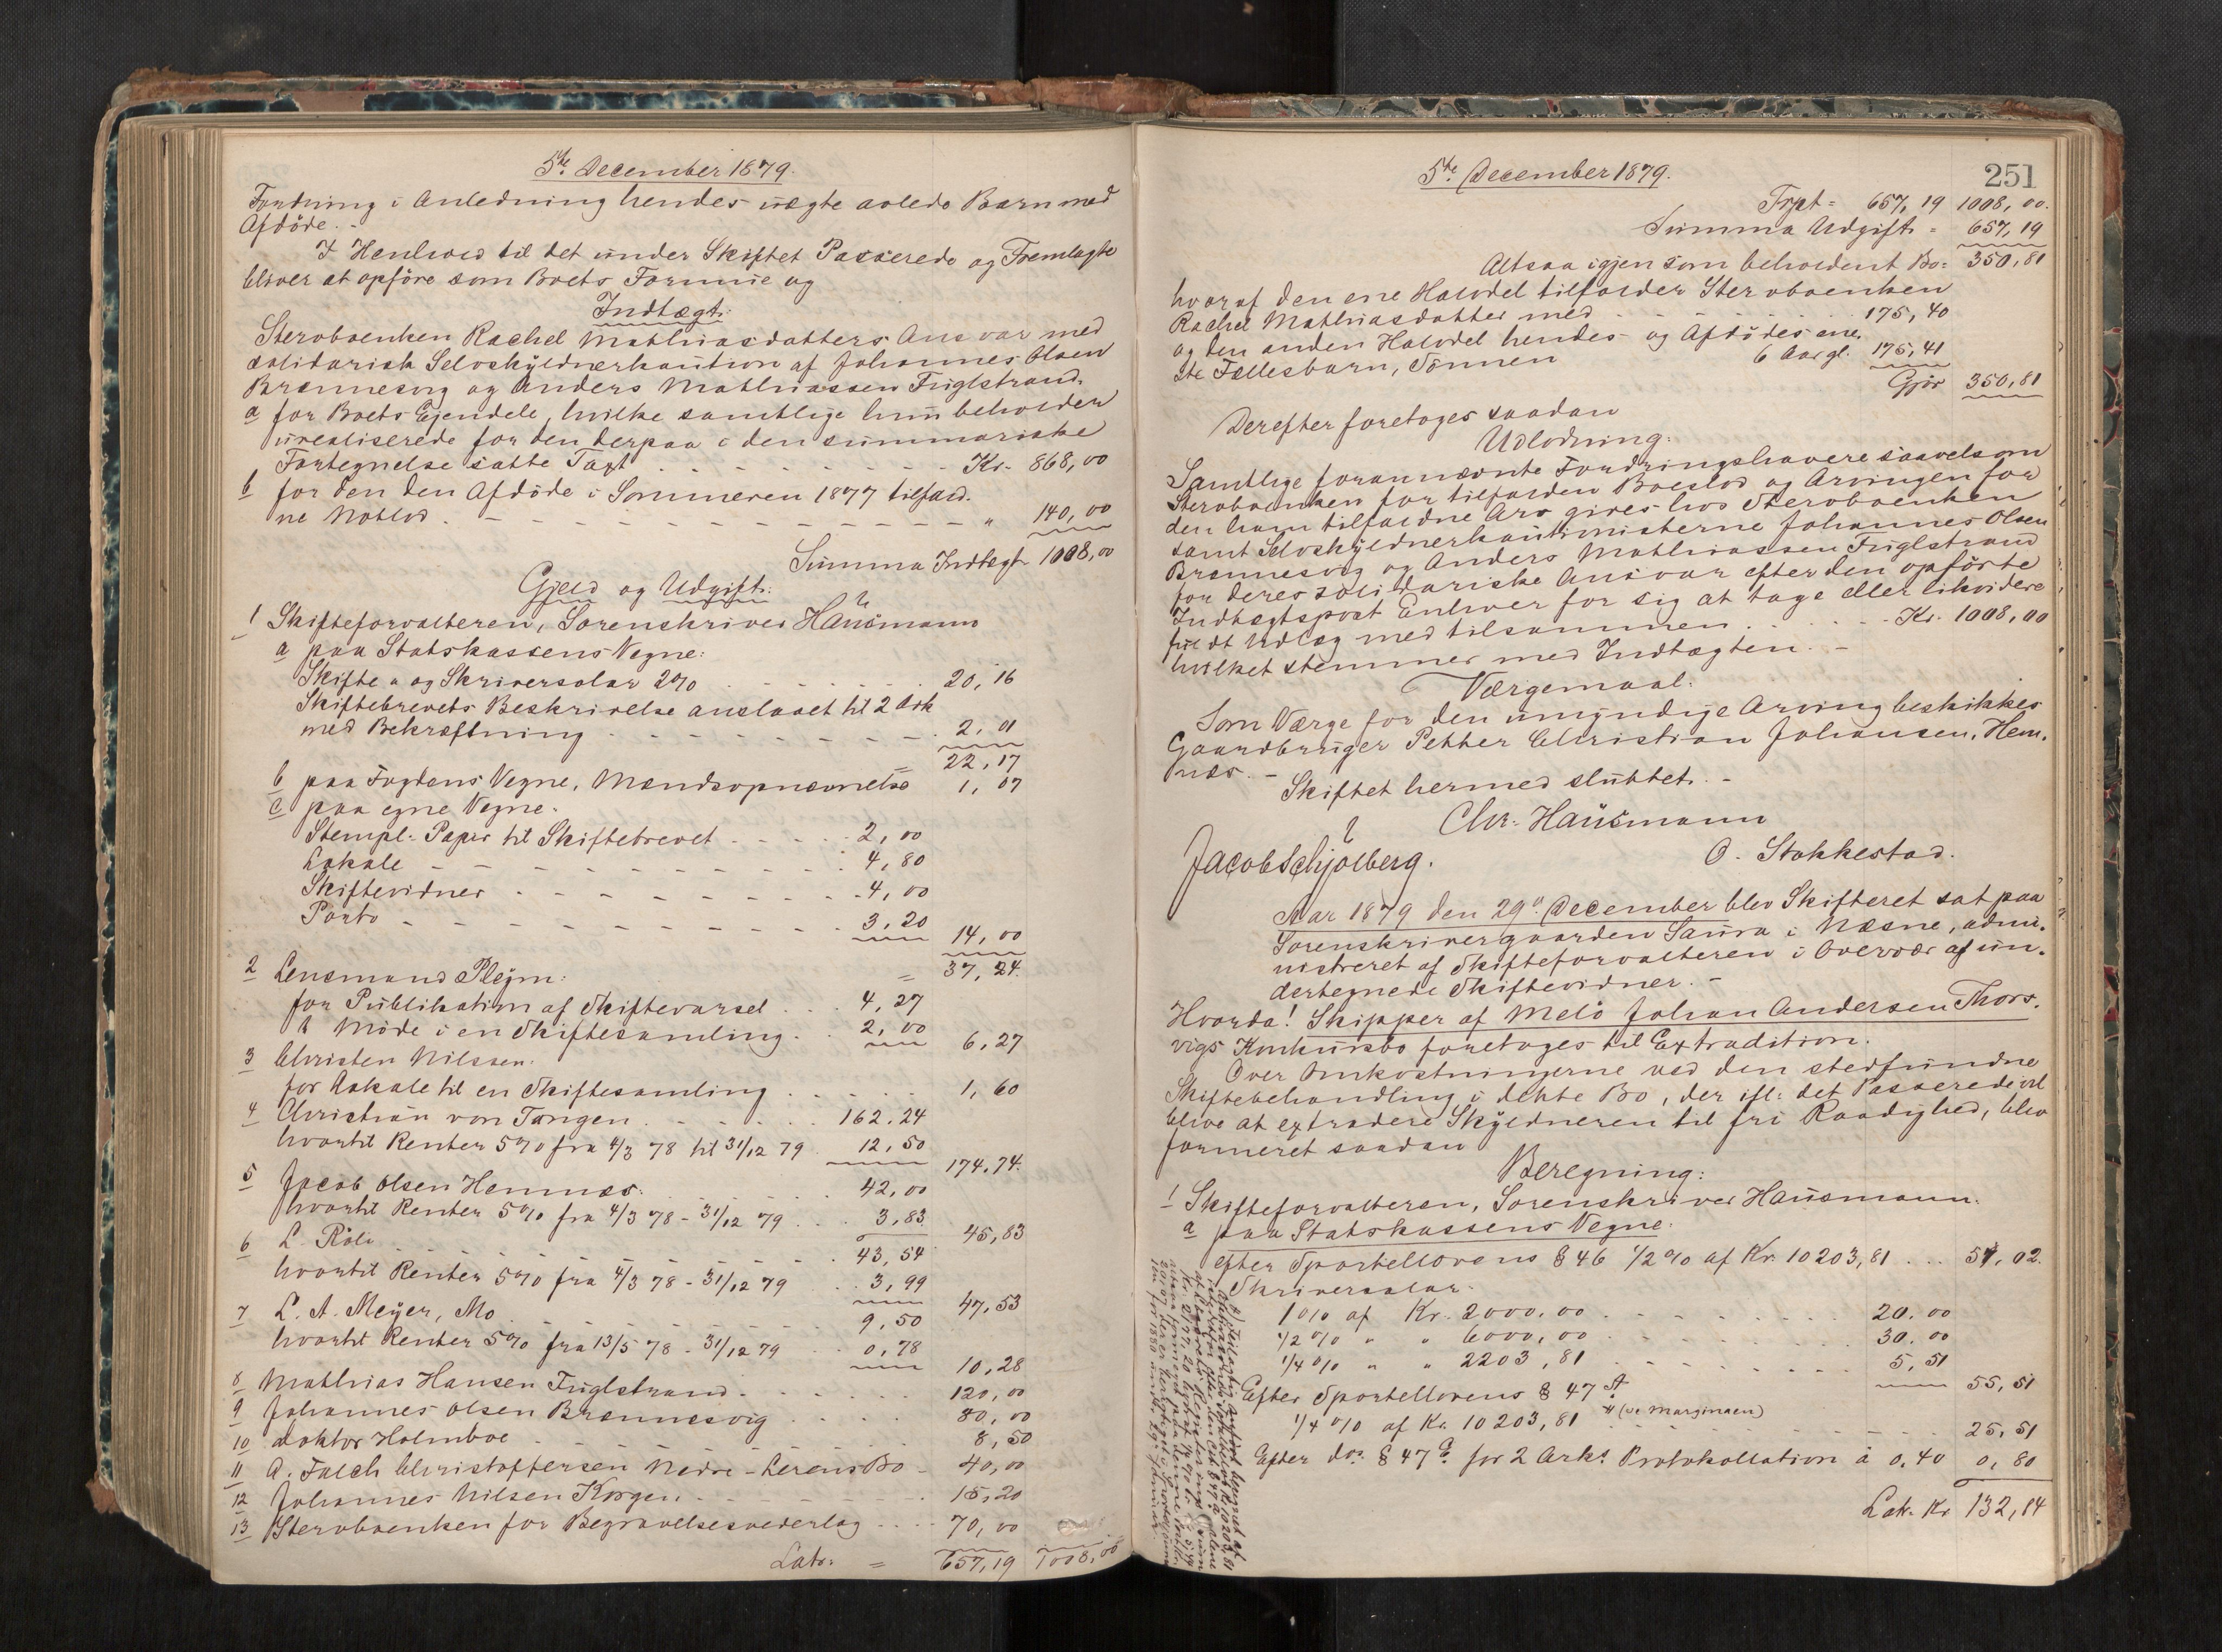 5te December 1879.
Fordring i Anledning hendes uægte avlede Barn med
Afdöde. -
I Henhold til det under Skiftet Passerede og Fremlagte
bliver at opföre som Boets Formue og
Indtægt:
Sterboenken Rachel Mathiasdatters Ansvar med
solidarisk Selvskyldnerkaution af Johannes Olsen
Brennesvig og Anders Mathiassen Fuglstrand.
a for Boets Ejendele, hvilke samtlige hun beholder
urealiserede for den derpaa i den summariske
Fortegnelse satte Taxt - - - Kr. 868,00
b for den den Afdöde i Sommeren 1877 tilfald.
ne Notlod - - - " 140,00
Summa Indtægt 1008,00
Gjeld og Udgift:
1 Skifteforvalteren, Sorenskriver Hausmann
a paa Statskassens Vegne:
Skifte- og Skriversalar 2% - - - 20,16
Skiftebrevets Beskrivelse anslaaet til 2 Ark
med Bekræftning - - - 2,01
= 22,17
b paa Fogdens Vegne, Mandsopnævnelse 1,07
c paa egne Vegne.
Stempl. Papir til Skiftebrevet - - - 2,00
Lokale - - - 4,80
Skiftevidner - - - 4,00
Porto - - - 3,20
14,00
= 37,24.
2 Lensmand Plejm:
for Publikation af Skiftevarsel . . 4,27
" Möde i en Skiftesamling . . 2,00
6,27
3 Christen Nilssen:
for Lokale til en Skiftesamling . . . 1,60
4 Christian von Tangen . . . 162.24
hvortil Renter 5% fra 4/3 78 til 31/12 79 12,50
174.74.
5 Jacob Olsen Hemnæs. . . . 42,00
hvortil Renter 5% fra 4/3 78 - 31/12 79 . . . 3,83.
45,83
6 L. Röli - - - 43,54
hvortil Renter 5% fra 4/3 78 - 31/12 79 . . 3,99
47,53
7 L. A. Meyer, Mo - - - 9,50
hvortil Renter 5% fra 13/5 78 - 31/12 79 . . 0,78
10,28
8 Mathias Hansen Fuglstrand . . . 120,00
9 Johannes Olsen Brennesvig . . . 80,00
10 doktor Holmboe - - - 8,50
11 A. Falch Christoffersen Nedre-Lerens Bo - 40,00
12 Johannes Nilsen Korgen. - - - 15,20
13 Sterboenken for Begravelsesvederlag . . . 70,00
Latr: = 657,19 1008,00
5te December 1879.
251
Trpt = 657,19 1008,00.
Summa Udgift = 657,19
Altsaa igjen som beholdent Bo = 350,81
hvoraf den ene Halvdel tilfalder Sterboenken
Rachel Mathiasdatter med - - - 175,40
og den anden Halvdel hendes og Afdödes ene.
ste Fællesbarn, Sönnen 6 Aar gl. 175,41
Gjör 350,81
Derefter foretoges saadan
Udlodning:
Samtlige forannævnte Fordringshavere saavelsom
Sterboenken for tilfalden Boeslod og Arvingen for
den ham tilfaldne Arv gives hos Sterboenken
samt Selvskyldnerkautionisterne Johannes Olsen
Brennesvig og Anders Mathiassen Fuglstrand
for deres solidariske Ansvar efter den opförte
Indtægtspost Enhver for sig at tage eller likvidere
fuldt Udlæg med tilsammen . . . Kr. 1008,00
hvilket stemmer med Indtægten. -
Værgemaal:
Som Værge for den umyndige Arving beskikkes
Gaardbruger Petter Christian Johansen, Hem.
næs. -
Skiftet hermed sluttet. -
Chr. Hausmann
Jacob Schjølberg.
O. Stokkestad.
Aar 1879 den 29de December blev Skifteret sat paa
Sorenskrivergaarden Saura i Næsne, admi.
nistreret af Skifteforvalteren i Overvær af un.
dertegnede Skiftevidner. -
Hvorda! Skipper af Melö Johan Andersen Thors.
vigs Konkursbo foretoges til Extradition.
Over Omkostningerne ved den stedfundne
Skiftebehandling i dette Bo, der ifl: det Passerede vil
blive at extradere Skyldneren til fri Raadighed, blev
formeret saadan
Beregning:
1 Skifteforvalteren, Sorenskriver Hausmann.
a paa Statskassens Vegne.
efter Sportellovens § 46 1/2 % af Kr. 10203,81 . . . 51,02.
Skriversalar.
1 % af Kr. 2000.00 - - - 20.00
1/2 % " " 6000,00 - - - 30.00
1/4 % " " 2203,81 - - - 5,51
55,51
Efter Sportellovens § 47 A
1/4 % af Kr. 10203,81 # (se Marginaen) - - - 25,51
Efter do. § 47 c for 2 Arks Protokollation à 0,40 0,80
Latr. Kr 132,84